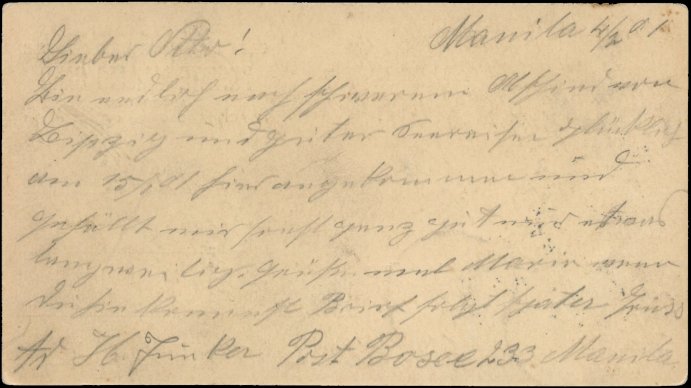 Lieber Otto! Manila 4/2 01
Bin endlich nach schwerem Abschied von
Leipzig und guter Seereise glücklich
am 15/1 01 hier angekommen und
gefällt mir sonst ganz gut nur etwas
langweilig. Grüße mal Marie wenn
Du sie kennst Brief folgt später Gruss
Ad H. Junker Post Boxe 233 Manila.